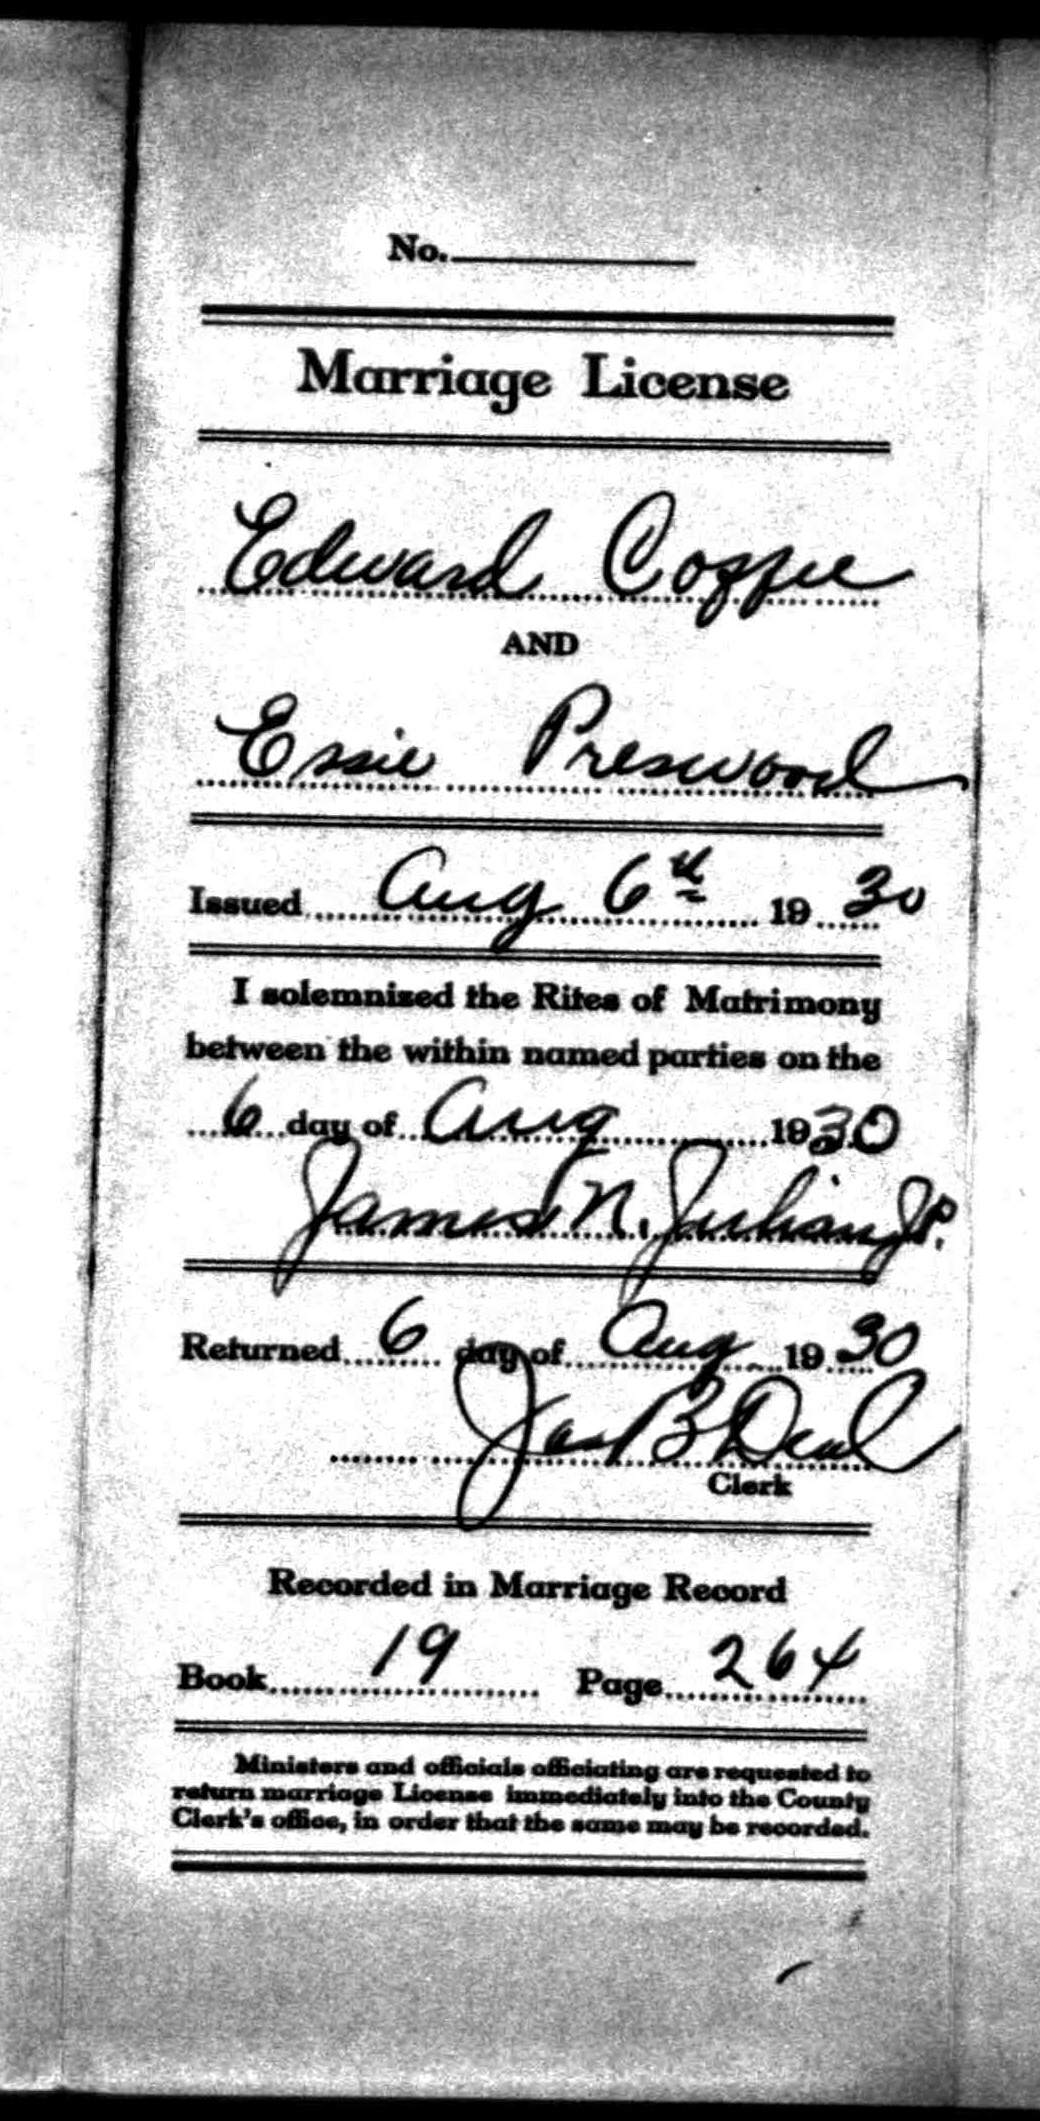 No.
Marriage License
Edward Coffee
AND
Essie Preswood
Issued Aug 6th 1930
I solemnized the Rites of Matrimony
between the within named parties on the
6 day of Aug 1930
James N. Julian J.P.
Returned 6 day of Aug 1930
Jas B Deal
Clerk
Recorded in Marriage Record
Book 19 Page 264
Ministers and officials officiating are requested to
return marriage License immediately into the County
Clerk's office, in order that the same may be recorded.